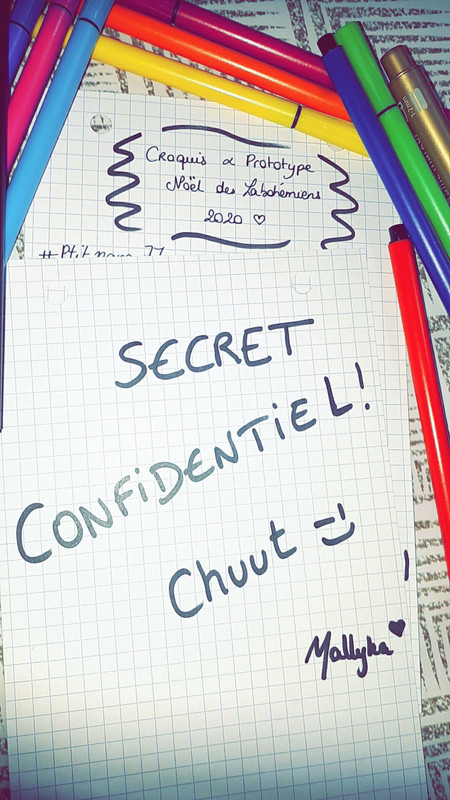 Croquis & Prototype
Noël des Labohémiens
2020 ♡
SECRET
CONFiDENTiEL!
Chuut =)
Mallyka ♥
12mm